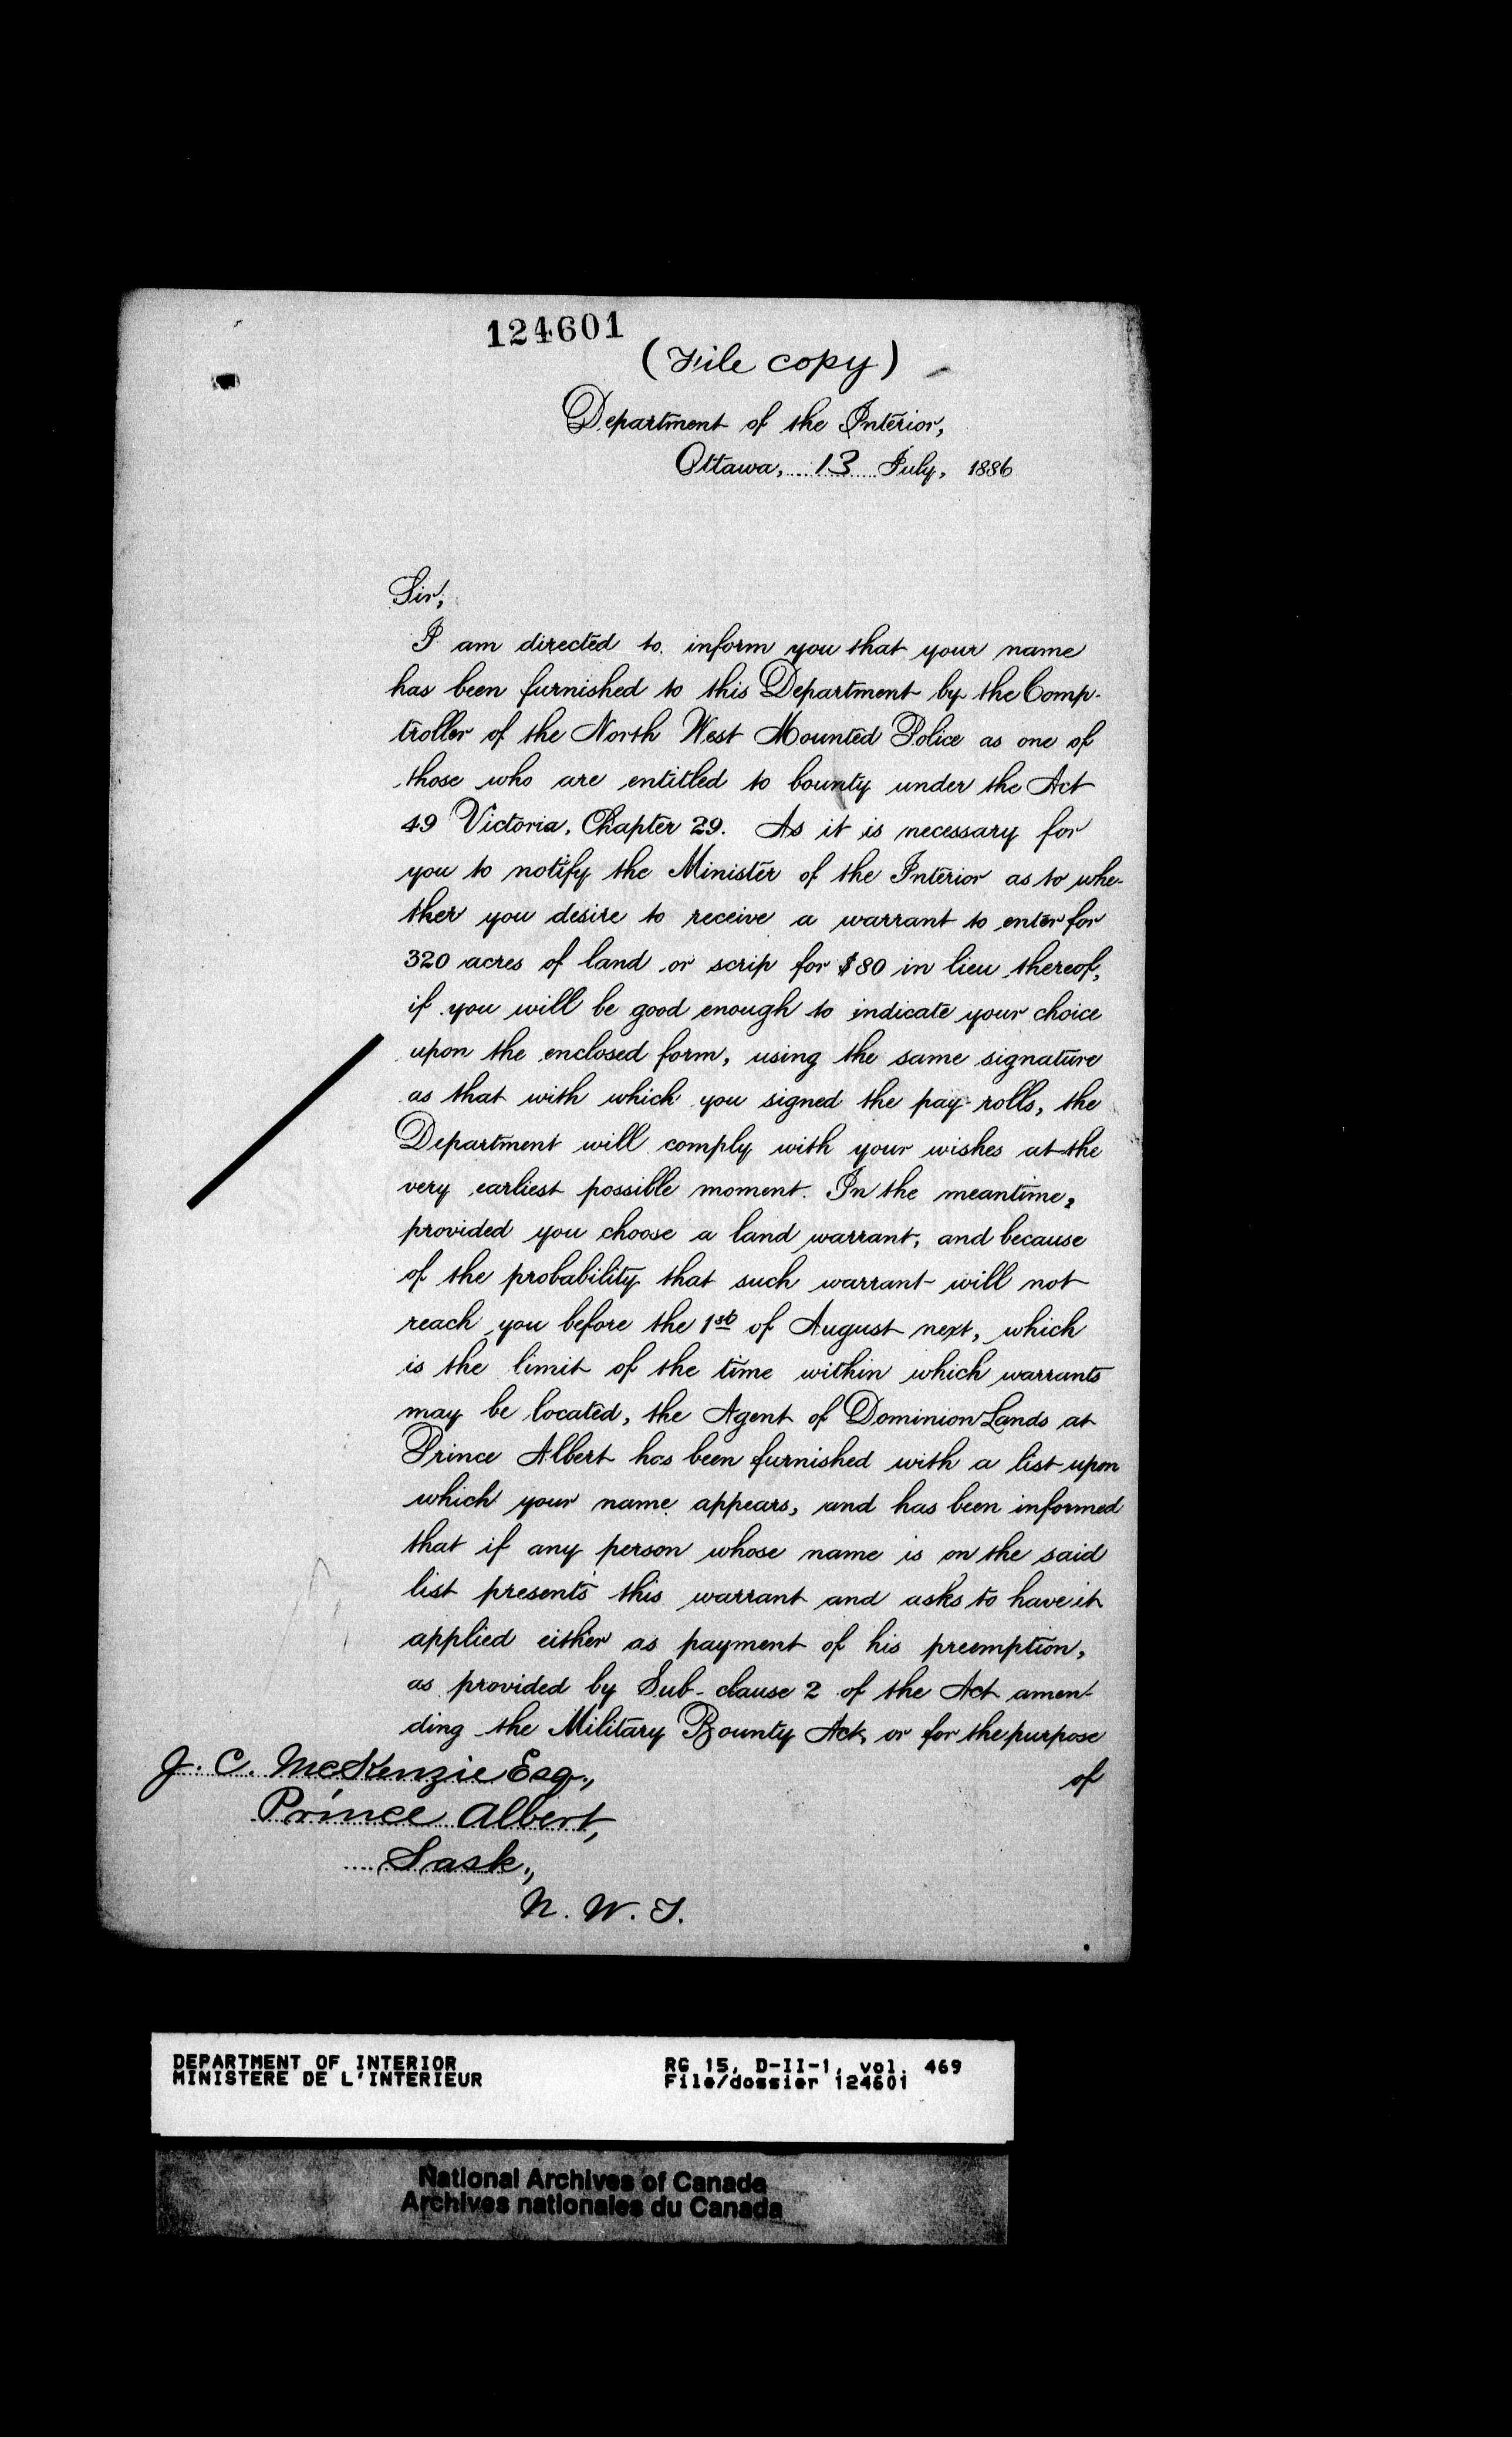 124601
(File copy)
Department of the Interior,
Ottawa, 13 July, 1886
Sir,
I am directed to inform you that your name
has been furnished to this Department by the Comp-
troller of the North West Mounted Police as one of
those who are entitled to bounty under the Act
49 Victoria, Chapter 29. As it is necessary for
you to notify the Minister of the Interior as to whe-
ther you desire to receive a warrant to enter for
320 acres of land or scrip for $80 in lieu thereof,
if you will be good enough to indicate your choice
upon the enclosed form, using the same signature
as that with which you signed the pay-rolls, the
Department will comply with your wishes at the
very earliest possible moment. In the meantime,
provided you choose a land warrant, and because
of the probability that such warrant will not
reach you before the 1st of August next, which
is the limit of the time within which warrants
may be located, the Agent of Dominion Lands at
Prince Albert has been furnished with a list upon
which your name appears, and has been informed
that if any person whose name is on the said
list presents this warrant and asks to have it
applied either as payment of his preemption,
as provided by Sub-clause 2 of the Act amen-
ding the Military Bounty Act, or for the purpose
of
J. C. McKenzie Esq.,
Prince Albert,
Sask.,
N. W. T.
DEPARTMENT OF INTERIOR RG 15, D-II-1, vol. 469
MINISTERE DE L'INTERIEUR File/dossier 124601
National Archives of Canada
Archives nationales du Canada